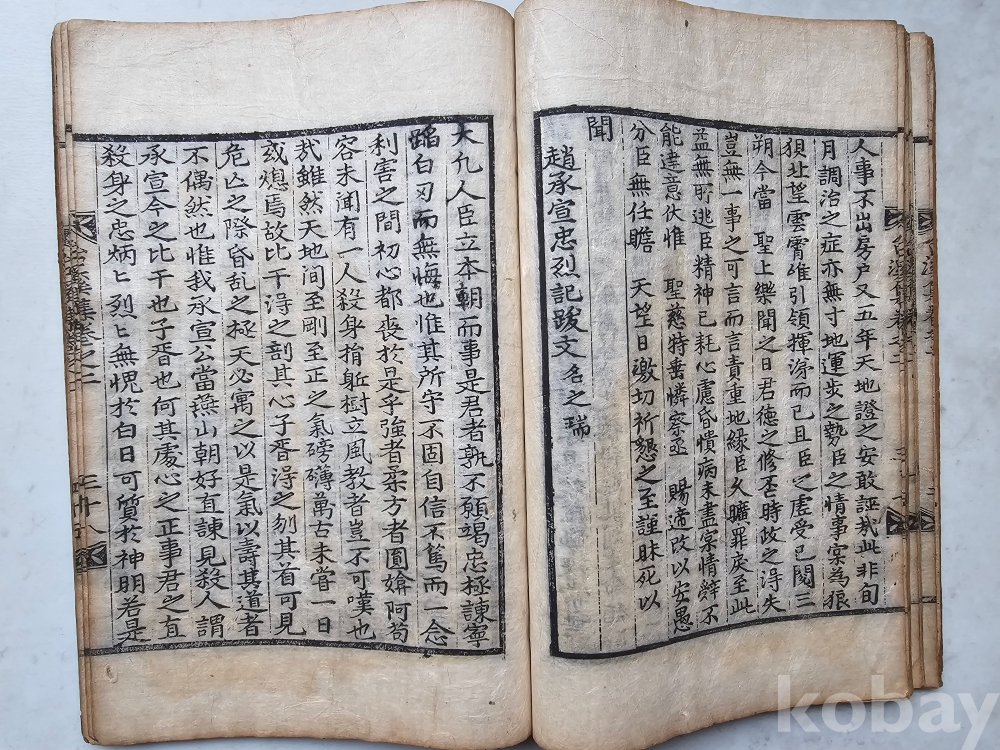 人事不出房户又五年天地證之安敢誣哉此非旬
月調治之症亦無寸地運步之勢臣之情事宲為狼
狽北望雲霄维引領揮涕而已且臣之虚受已閱三
朔今當 聖上樂聞之日君德之修否時政之淂失
豈無一事之可言而言責重地緣臣久曠罪戾至此
益無所逃臣精神已耗心慮昏憒病未盡宲情辤不
能違意伏惟 聖慈特垂憐察亟 賜遞改以安愚
分臣無任瞻 天望日激切祈懇之至謹昧死以
聞
趙承宣忠烈記跋文 名之瑞
大凢人臣立本朝而事是君者孰不願竭忠極諫寧
蹈白刃而無悔也惟其所守不固自信不篤而一念
利害之間初心都喪於是乎強者柔方者圓媕阿苟
容未聞有一人殺身捐軀樹立風教者豈不可嘆也
㢤雖然天地间至剛至正之氣磅礴萬古未甞一日
或熄焉故比干淂之剖其心子胥淂之刎其首可見
危亾之際昏乱之極天必寓之以是氣以壽其道者
不偶然也惟我承宣公當燕山朝好直諫見殺人謂
承宣今之比干也子胥也何其處心之正事君之直
殺身之忠炳〻烈〻無愧於白日可質於神明若是
集卷之二
三十八